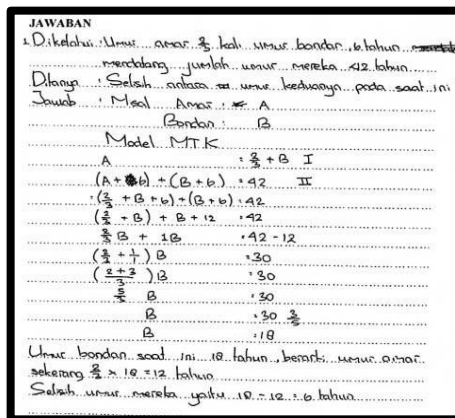 JAWABAN
1. Diketahui : Umur amar 2/3 kali umur bondan, 6 tahun
mendatang jumlah umur mereka 42 tahun
Ditanya : Selisih antara umur keduanya pada saat ini
Jawab : Misal Amar : A
Bondan : B
Model MTK
A = 2/3 + B I
(A + 6) + (B + 6) = 42 II
= (2/3 + B + 6) + (B + 6) = 42
(2/3 + B) + B + 12 = 42
2/3 B + 1B = 42 - 12
(2/3 + 1/1) B = 30
(2+3/3) B = 30
5/3 B = 30
B = 30 3/5
B = 18
Umur bondan saat ini 18 tahun, berarti umur amar
sekarang 2/3 x 18 = 12 tahun
Selisih umur mereka yaitu 18 - 12 = 6 tahun